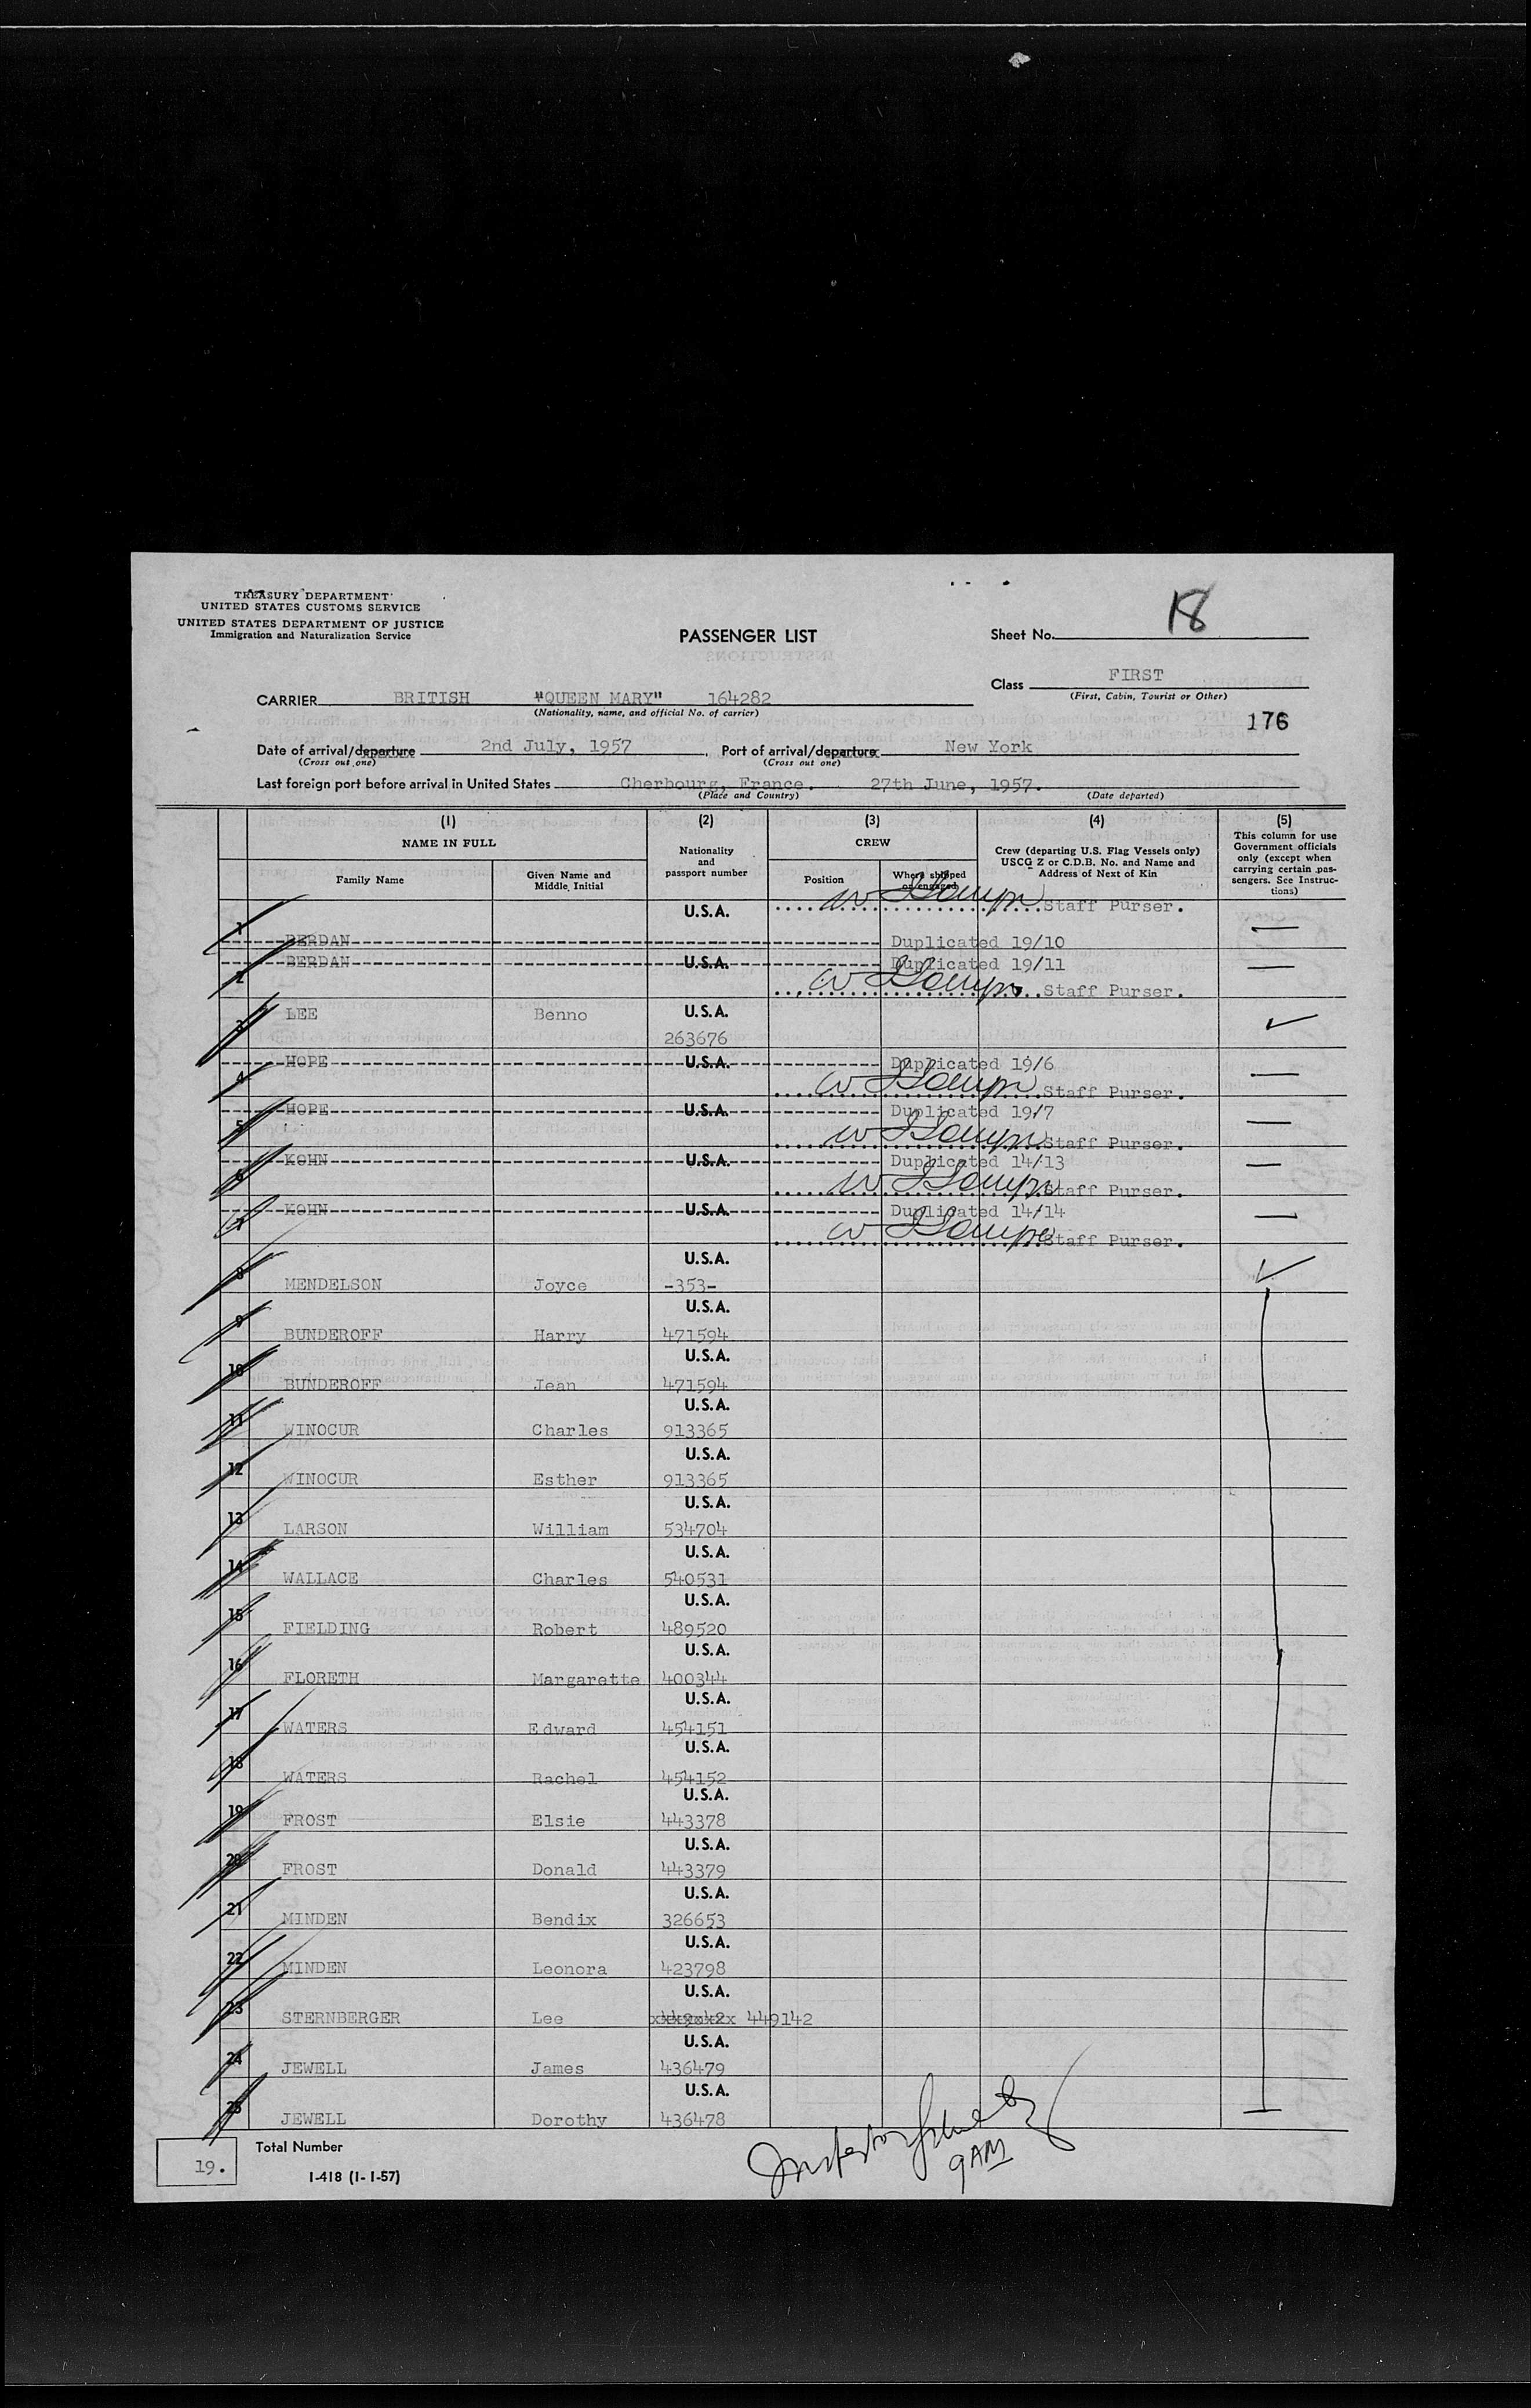 TREASURY DEPARTMENT
UNITED STATES CUSTOMS SERVICE
UNITED STATES DEPARTMENT OF JUSTICE
Immigration and Naturalization Service
PASSENGER LIST
Sheet No. 18
Class FIRST
(First, Cabin, Tourist or Other)
CARRIER BRITISH "QUEEN MARY" 164282
(Nationality, name, and official No. of carrier)
176
Date of arrival/departure 2nd July, 1957. Port of arrival/departure New York
(Cross out one) (Cross out one)
Last foreign port before arrival in United States Cherbourg, France. 27th June, 1957.
(Place and Country) (Date departed)
(1) (2) (3) (4) (5)
NAME IN FULL Nationality and passport number CREW Crew (departing U.S. Flag Vessels only) USCG Z or C.D.B. No. and Name and Address of Next of Kin This column for use Government officials only (except when carrying certain passengers. See Instructions)
Family Name Given Name and Middle Initial Position Where shipped or engaged
U.S.A. Staff Purser.
1 BERDAN Duplicated 19/10
2 BERDAN U.S.A. Duplicated 19/11
Staff Purser.
3 LEE Benno U.S.A.
263676
4 HOPE U.S.A. Duplicated 19/6
Staff Purser.
5 HOPE U.S.A. Duplicated 19/7
Staff Purser.
6 KOHN U.S.A. Duplicated 14/13
Staff Purser.
7 KOHN U.S.A. Duplicated 14/14
Staff Purser.
U.S.A.
8 MENDELSON Joyce -353-
U.S.A.
9 BUNDEROFF Harry 471594
U.S.A.
10 BUNDEROFF Jean 471594
U.S.A.
11 WINOCUR Charles 913365
U.S.A.
12 WINOCUR Esther 913365
U.S.A.
13 LARSON William 534704
U.S.A.
14 WALLACE Charles 540531
U.S.A.
15 FIELDING Robert 489520
U.S.A.
16 FLORETH Margarette 400344
U.S.A.
17 WATERS Edward 454151
U.S.A.
18 WATERS Rachel 454152
U.S.A.
19 FROST Elsie 443378
U.S.A.
20 FROST Donald 443379
U.S.A.
21 MINDEN Bendix 326653
U.S.A.
22 MINDEN Leonora 423798
U.S.A.
23 STERNBERGER Lee 449142
U.S.A.
24 JEWELL James 436479
U.S.A.
25 JEWELL Dorothy 436478
19. Total Number
I-418 (1-1-57)
Inspector
9AM